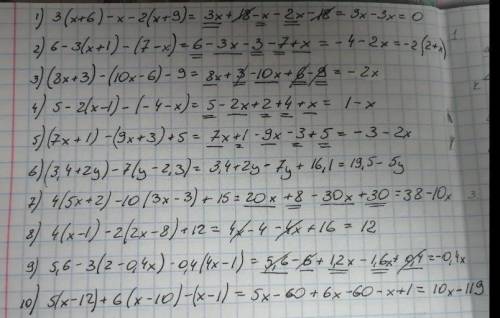 1) 3(x+6)-x-2(x+9)= 3x+18-x-2x-18=3x-3x=0
2) 6-3(x+1)-(7-x)=6-3x-3-7+x=-4-2x=-2(2+x)
3) (8x+3)-(10x-6)-9= 8x+3-10x+6-9=-2x
4) 5-2(x-1)-(-4-x)= 5-2x+2+4+x= 1-x
5) (7x+1)-(9x+3)+5= 7x+1-9x-3+5= -3-2x
6) (3,4+2y)-7(y-2,3)= 3,4+2y-7y+16,1=19,5-5y
7) 4(5x+2)-10(3x-3)+15=20x+8-30x+30=38-10x
8) 4(x-1)-2(2x-8)+12=4x-4-4x+16=12
9) 5,6-3(2-0,4x)-0,4(4x-1)=5,6-6+1,2x-1,6x+0,4=-0,4x
10) 5(x-12)+6(x-10)-(x-1)=5x-60+6x-60-x+1=10x-119